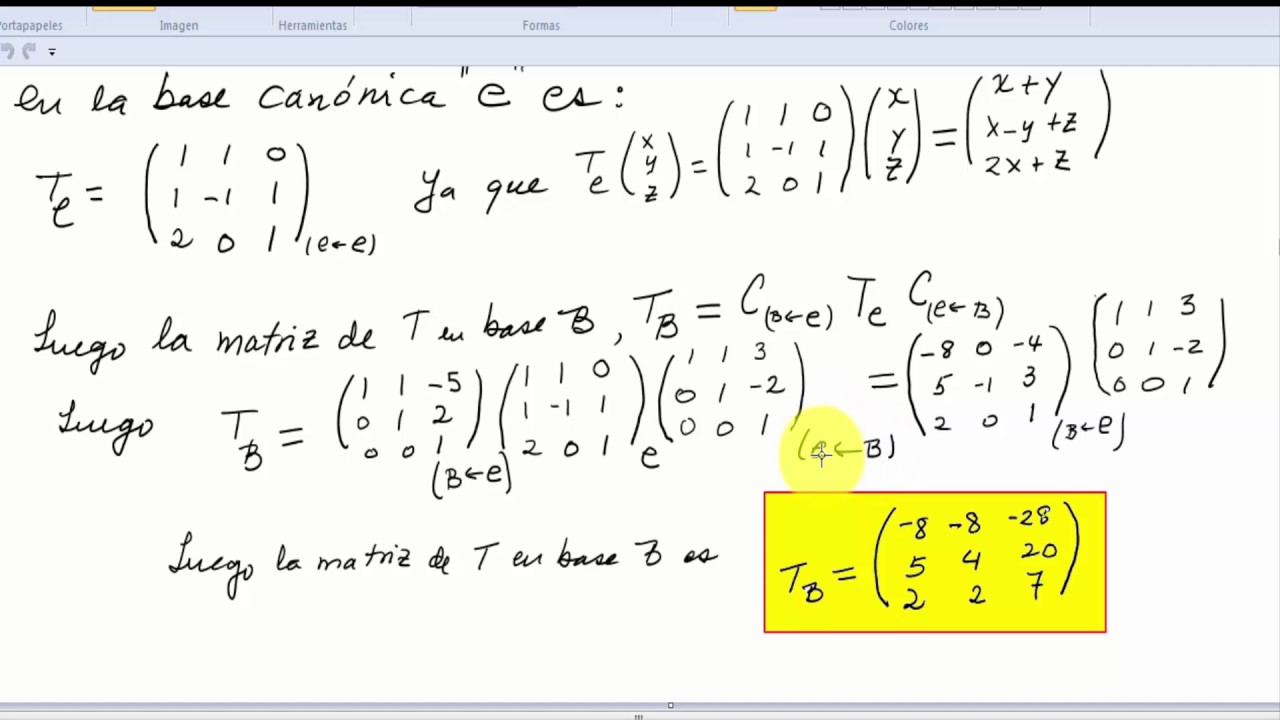 Portapapeles Imagen Herramientas Formas Colores
en la base canónica "e" es:
T_e = (1 1 0; 1 -1 1; 2 0 1)_(e←e) Ya que T_e (x; y; z) = (1 1 0; 1 -1 1; 2 0 1) (x; y; z) = (x+y; x-y+z; 2x+z)
Luego la matriz de T en base B, T_B = C_(B←e) T_e C_(e←B)
Luego T_B = (1 1 -5; 0 1 2; 0 0 1)_(B←e) (1 1 0; 1 -1 1; 2 0 1)_e (1 1 3; 0 1 -2; 0 0 1)_(e←B) = (-8 0 -4; 5 -1 3; 2 0 1)_(B←e) (1 1 3; 0 1 -2; 0 0 1)
Luego la matriz de T en base B es T_B = (-8 -8 -28; 5 4 20; 2 2 7)